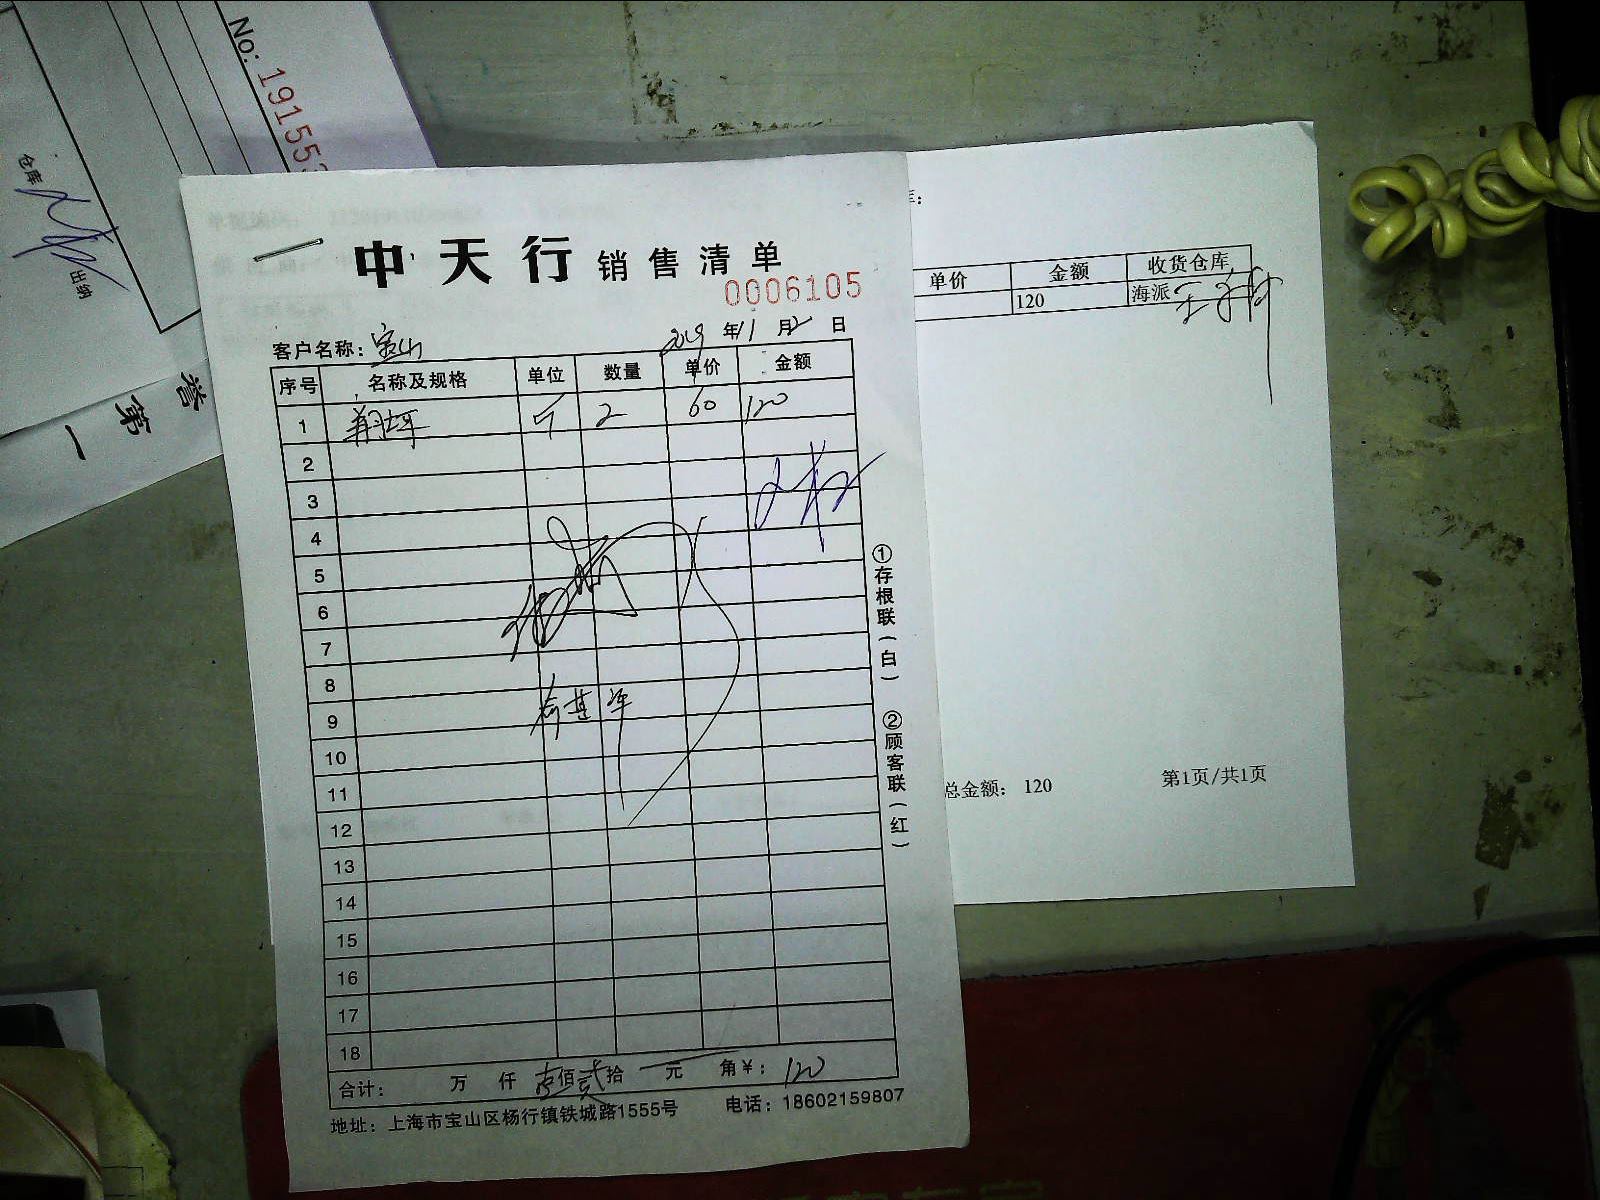 No: 191553
仓库
出纳
誉第一
中天行 销售清单
0006105
客户名称：宝山 2019年11月2日
序号 名称及规格 单位 数量 单价 金额
1 2 60 120
2
3
4
5
6
7
8
9
10
11
12
13
14
15
16
17
18
合计： 万 仟 壹佰贰拾 元 角￥：120
地址：上海市宝山区杨行镇铁城路1555号 电话：18602159807
①存根联（白） ②顾客联（红）
库：
单价 金额 收货仓库
120 海派
总金额： 120 第1页/共1页